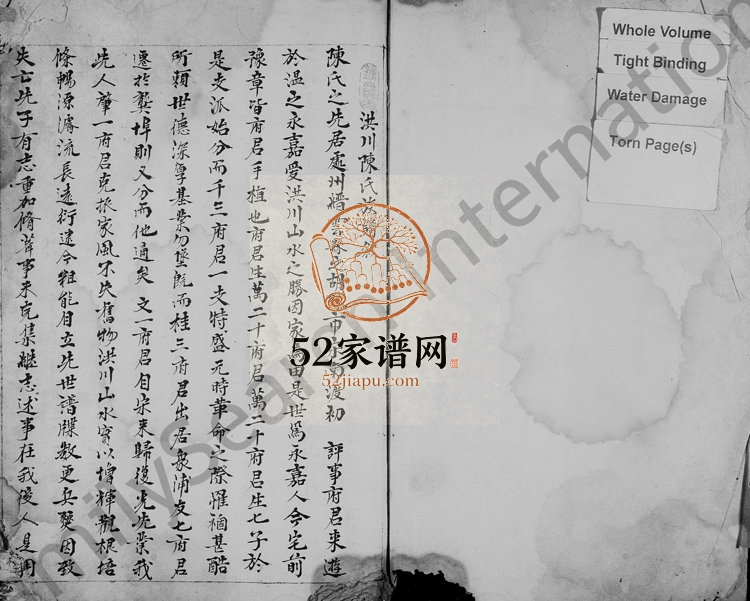 洪川陳氏
陳氏之先居處州縉雲 胡 市 南渡初 評事府君來遊
於溫之永嘉愛洪川山水之勝因家焉由是世爲永嘉人今宅前
豫章皆府君手植也府君生萬二十府君萬二十府君生七子於
是支派始分而千三府君一支特盛元時革命之際罹禍甚酷
所賴世德深厚基業勿墜旣而桂三府君出居象浦友七府君
遷於龔埠則又分而他適矣文一府君自宋来歸復先先業我
先人肇一府君克振家風不失舊物洪川山水實以增輝觀根培
條暢源濬流長遠衍逮今粗能自立先世譜牒數更兵燹因致
失亡先子有志重加脩葺事未克集繼志述事在我後人是用
Whole Volume
Tight Binding
Water Damage
Torn Page(s)
52家谱网
52jiapu.com
milySearch International